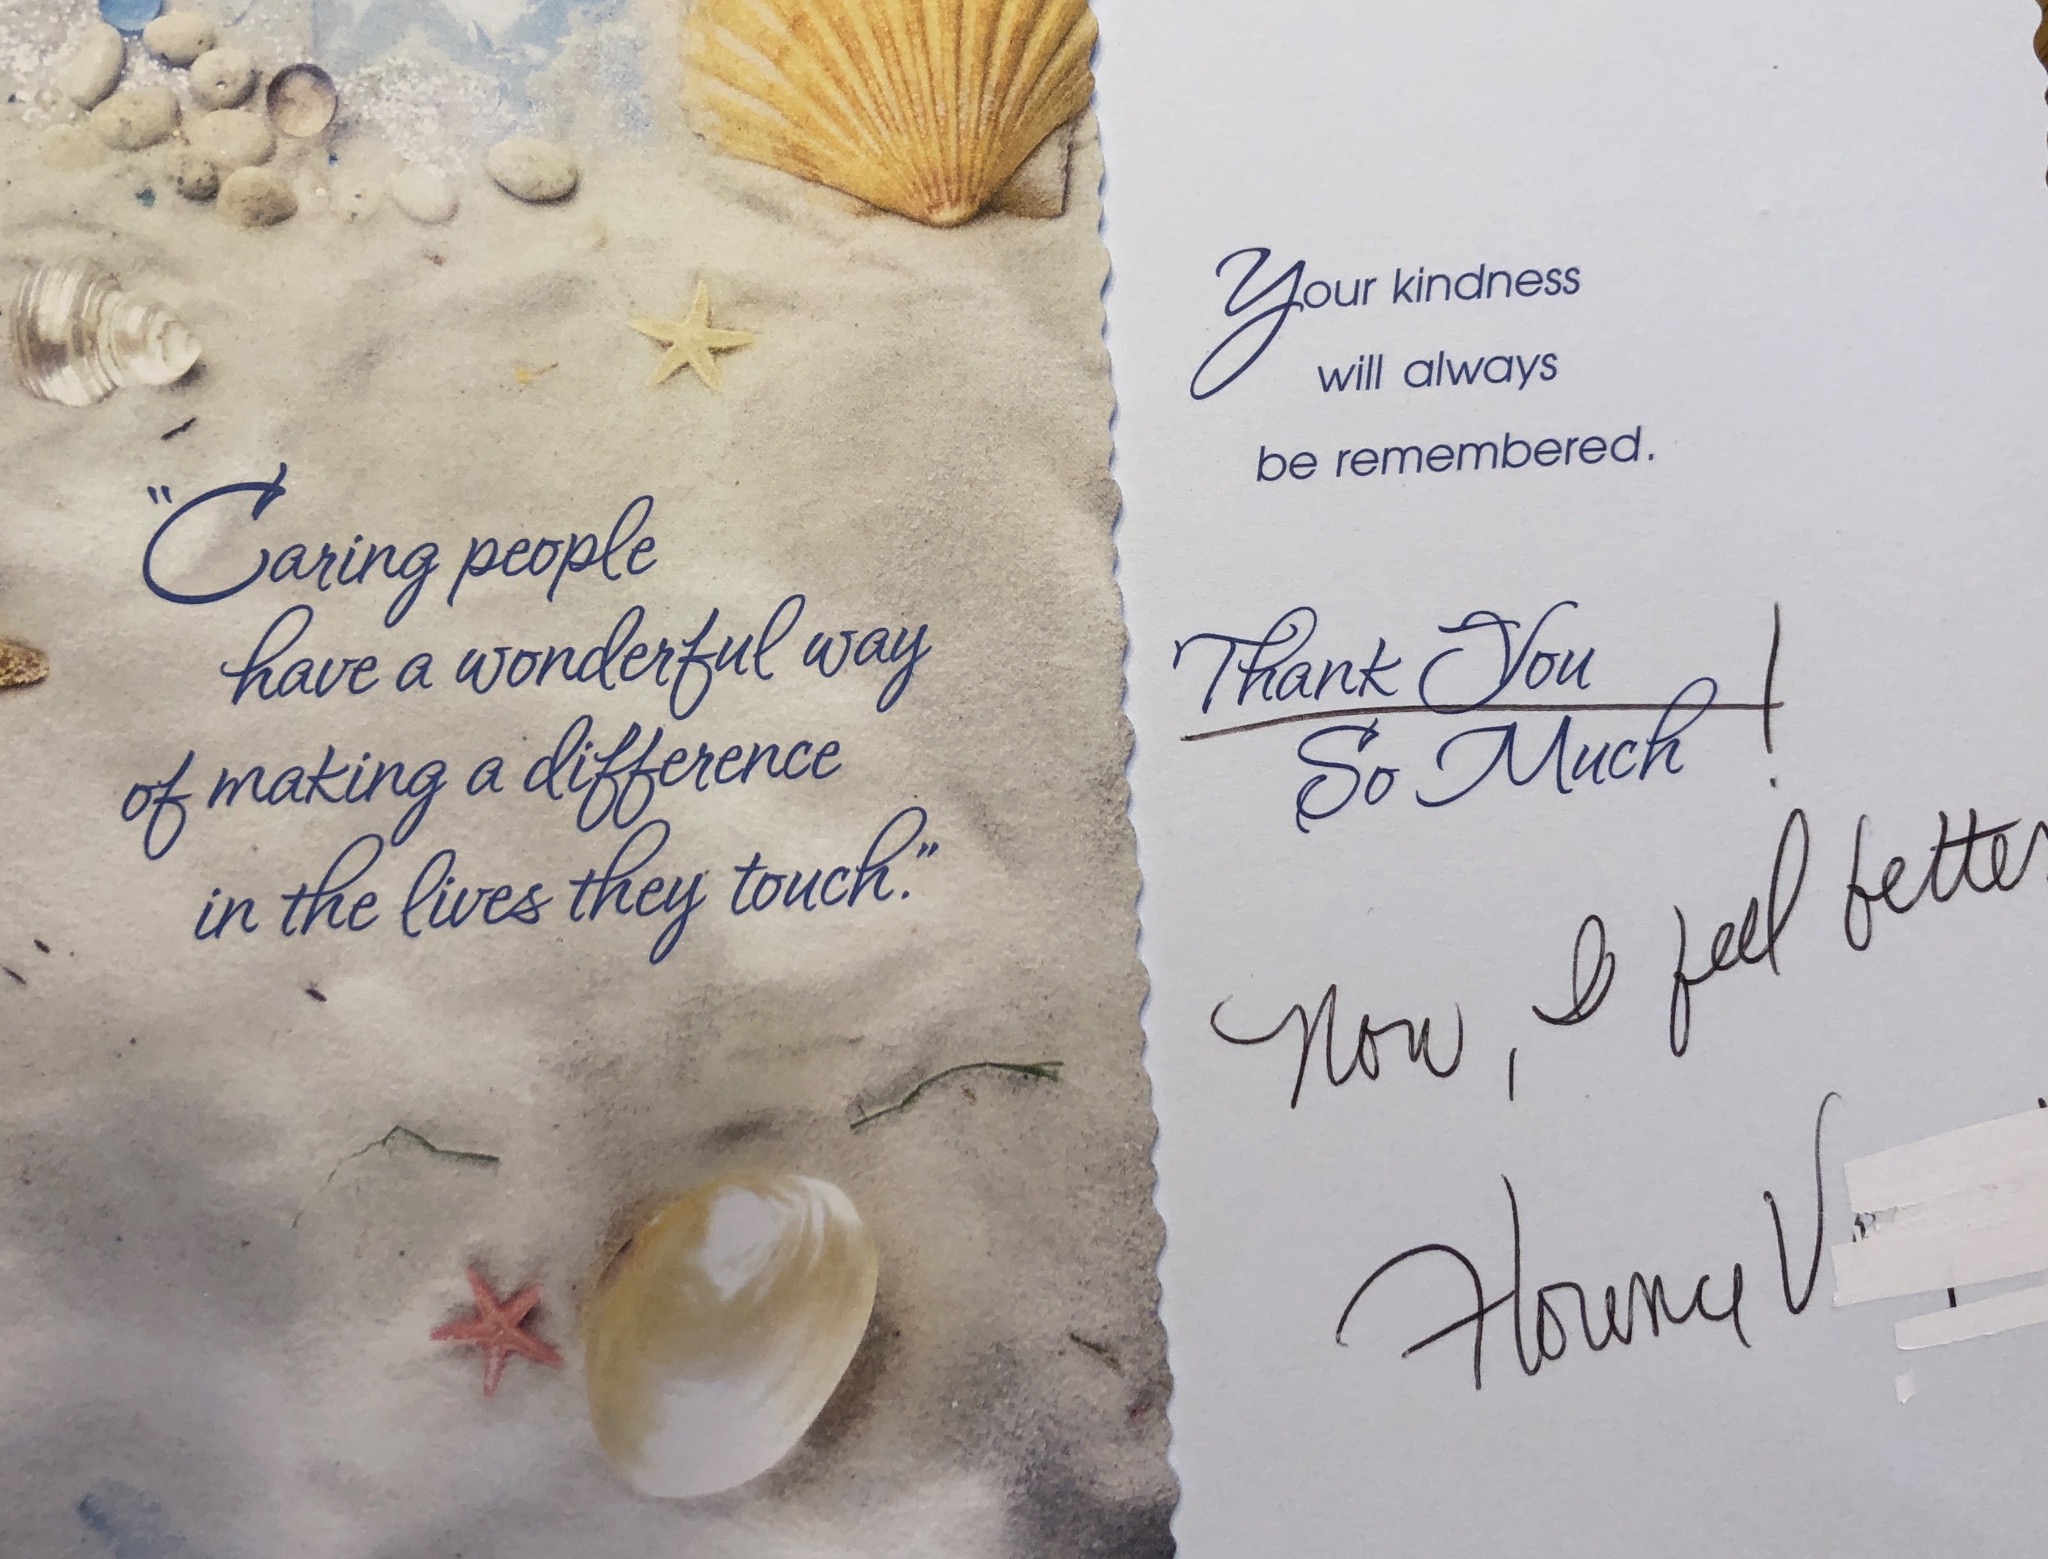 "Caring people
have a wonderful way
of making a difference
in the lives they touch."
Your kindness
will always
be remembered.
Thank You
So Much!
Now, I feel better
Florence V